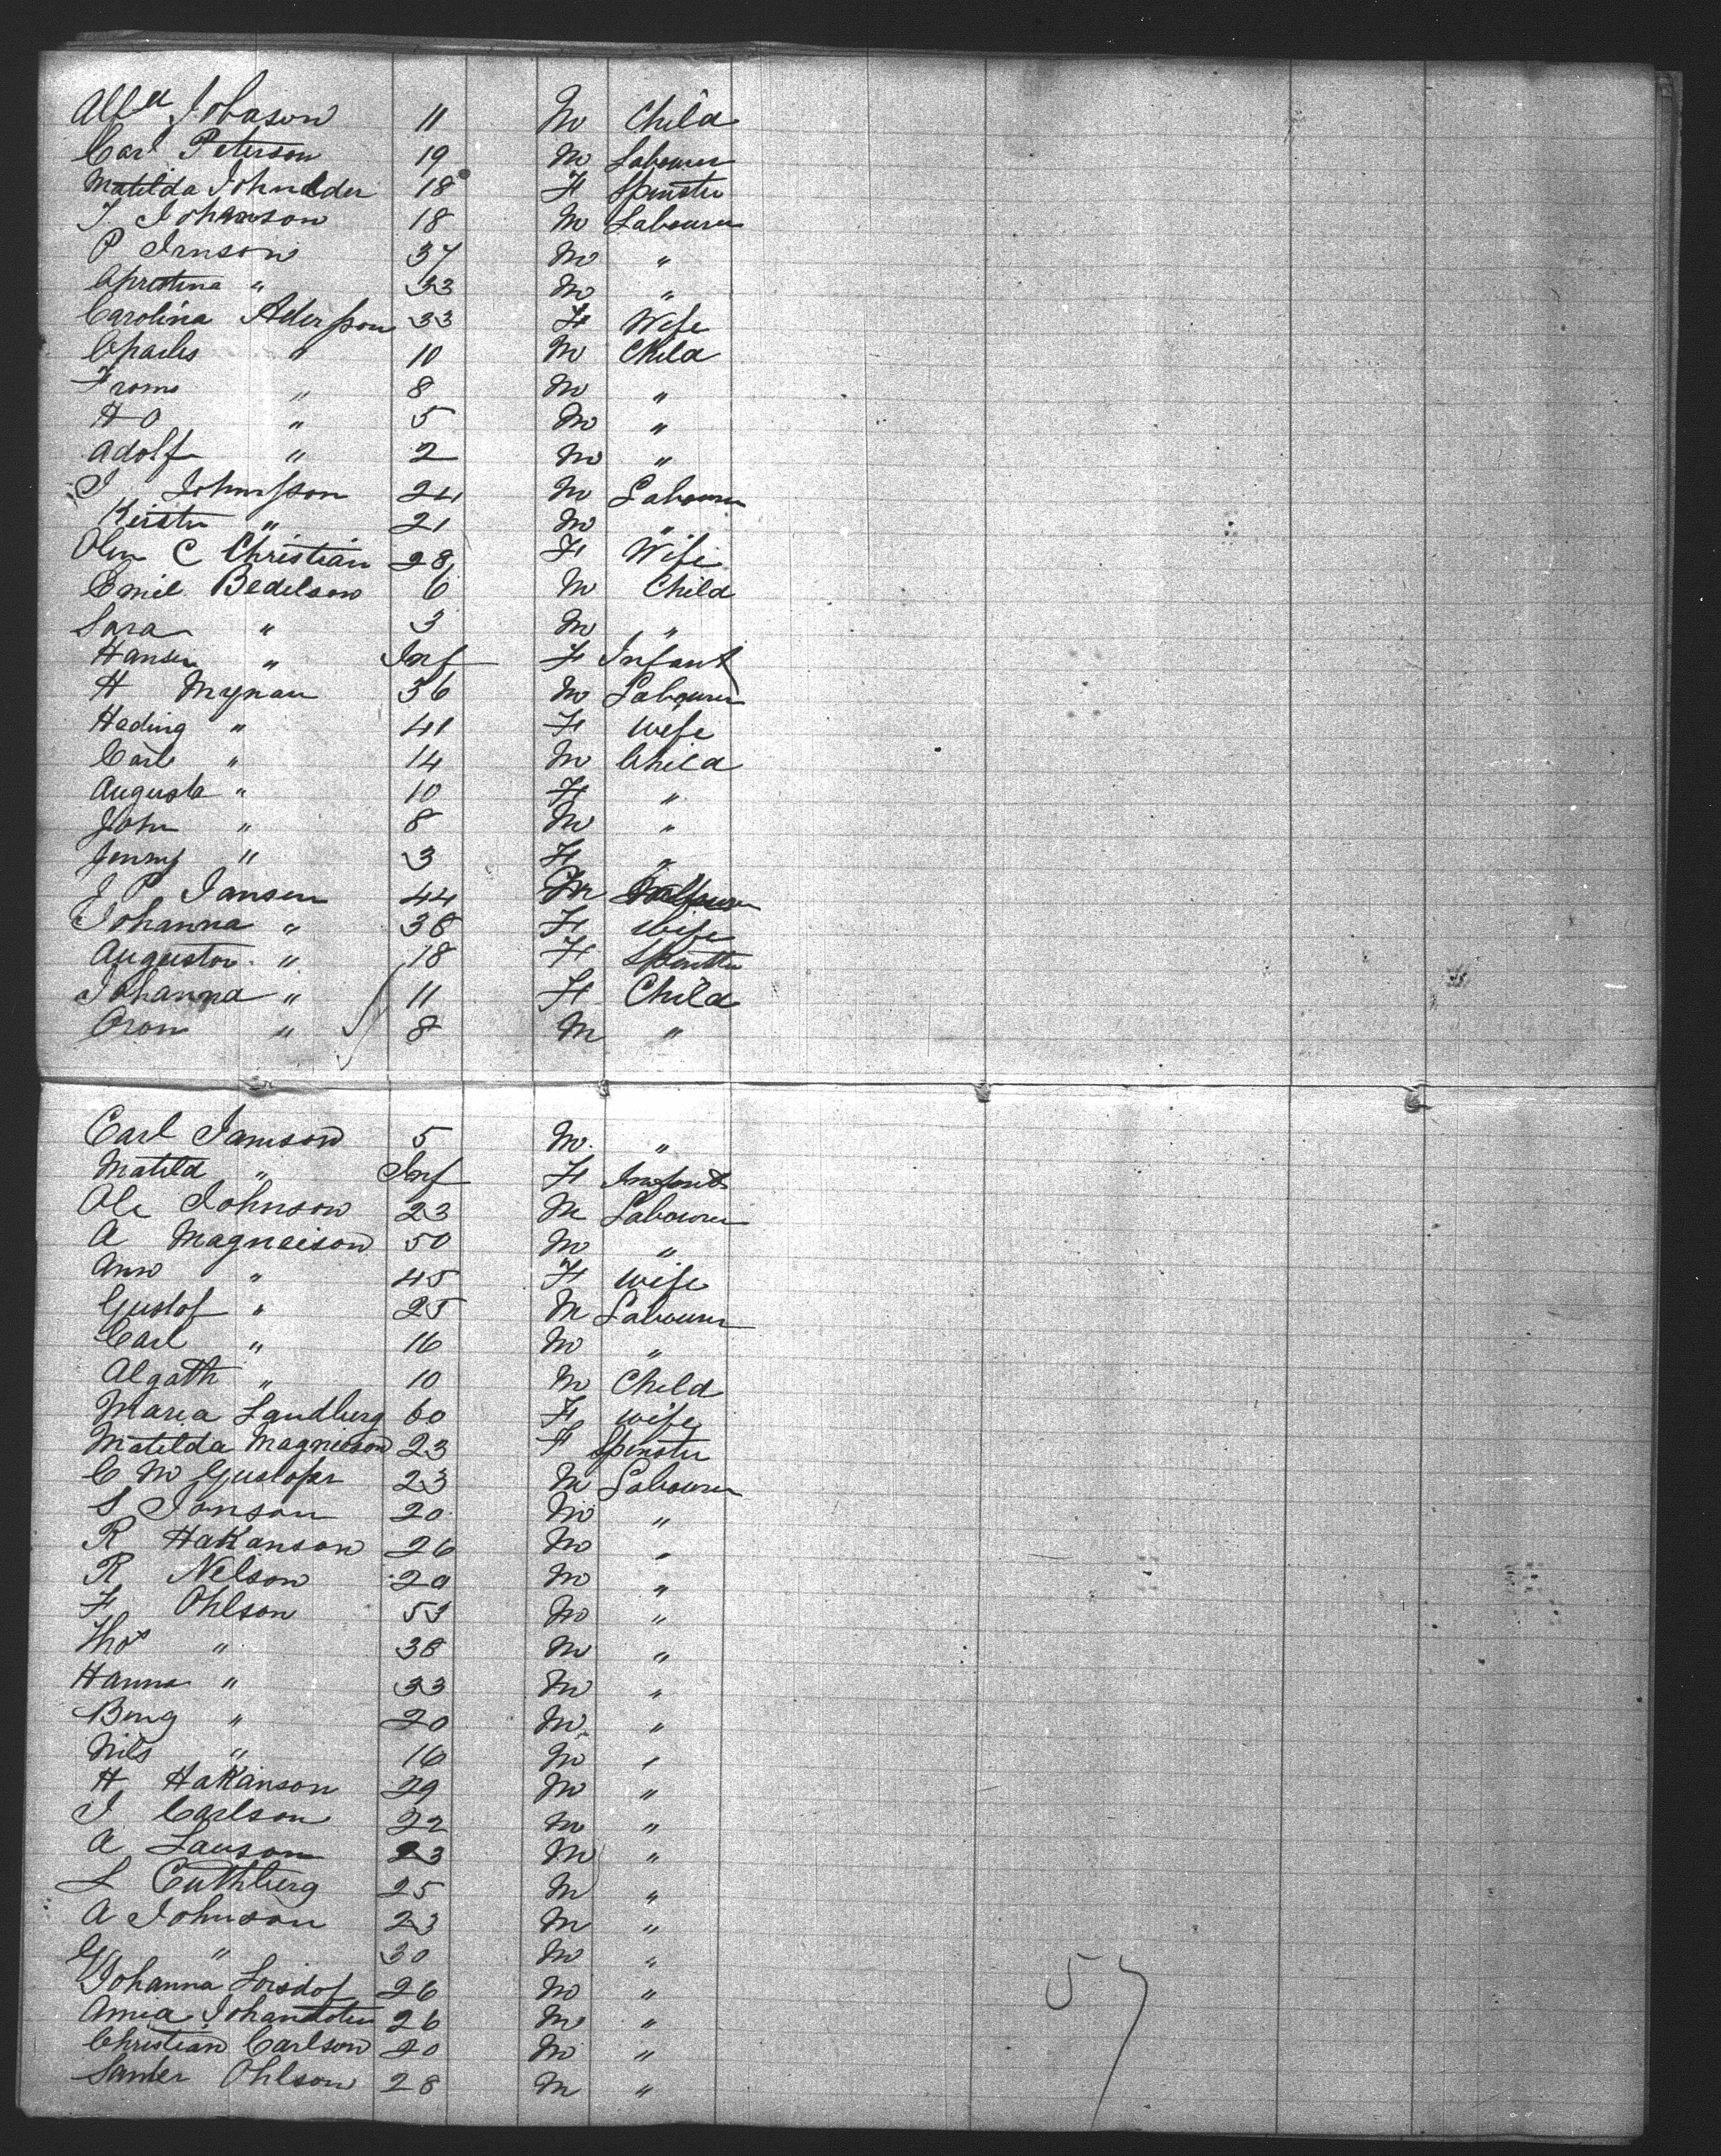 Alfd Johason 11 M Child
Carl Peterson 19 M Labourer
Matilda Johndder 18 F Spinster
J. Johanson 18 M Labourer
P Jrnson 37 M "
Christina " 33 M "
Carolina Adersson 33 F Wife
Charles " 10 M Child
From " 8 M "
H O " 5 M "
Adolf " 2 M "
J Johnsson 24 M Labourer
Kerstn " 21 M "
Olen C Christian 28 F Wife
Emil Bedelson 6 M Child
Sara " 3 M "
Hansen " Inf F Infant
H Mynau 36 M Labourer
Hading " 41 F Wife
Carl " 14 M Child
Augusta " 10 F "
John " 8 M "
Jenny " 3 F "
J P Jansen 44 M Labourer
Johanna " 38 F Wife
Auguston " 18 F Spinster
Johanna " 11 F Child
Oron " 8 M "
Carl Jamson 5 M "
Matild " Inf F Infant
Ole Johnson 23 M Labourer
A Magneison 50 M "
Ann " 45 F Wife
Gustof " 25 M Labourer
Carl " 16 M "
Algath " 10 M Child
Maria Landberg 60 F Wife
Matilda Magneison 23 F Spinster
C M Gustofsr 23 M Labourer
S Jonson 20 M "
R Hakanson 26 M "
R Nelson 20 M "
F Ohlson 53 M "
Thos " 38 M "
Hanna " 33 M "
Beng " 20 M "
Nils " 16 M "
H Hakanson 29 M "
J Carlson 22 M "
A Lauson 23 M "
L Cuthberg 25 M "
A Johnson 23 M "
G " 30 M "
Johanna Lorsdof 26 M "
Annia Johandotter 26 M "
Christian Carlson 20 M "
Samler Ohlson 28 M "
57